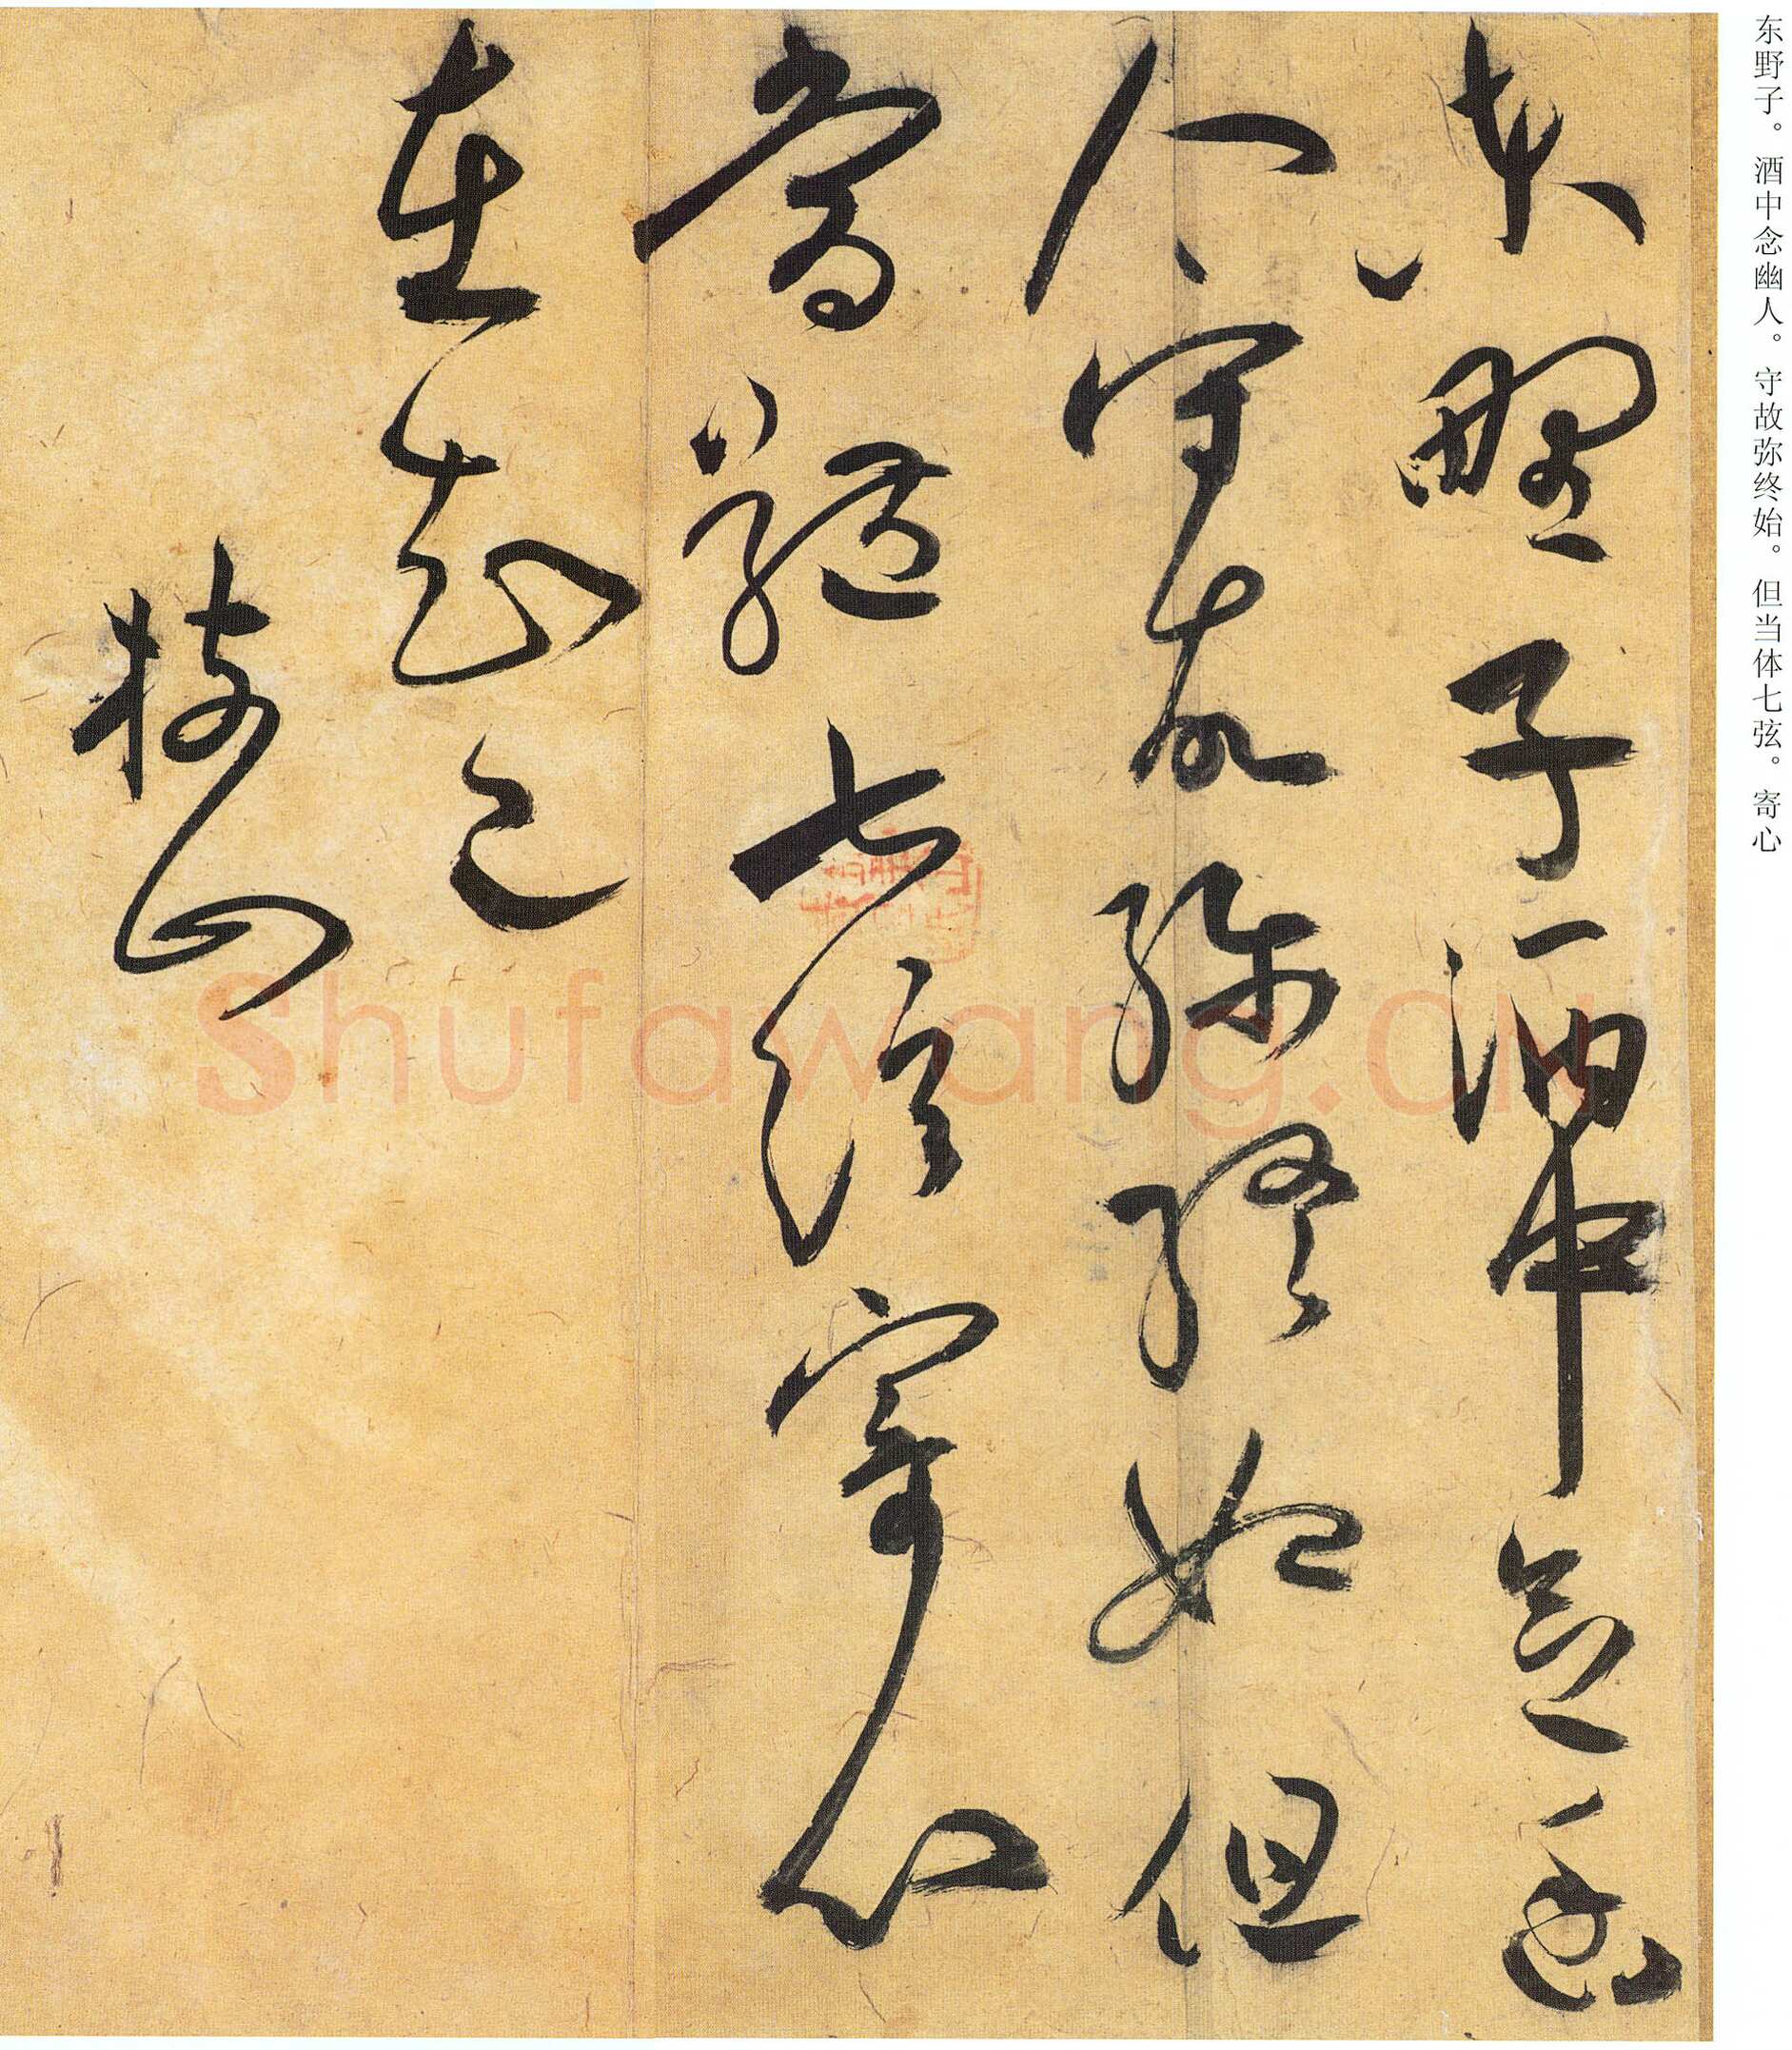 东野子。酒中念幽人。守故弥终始。但当体七弦。寄心
東野子酒中念幽
人守故彌終始但
當體七絃寄心
在知己
枝山
Shufawang.CN